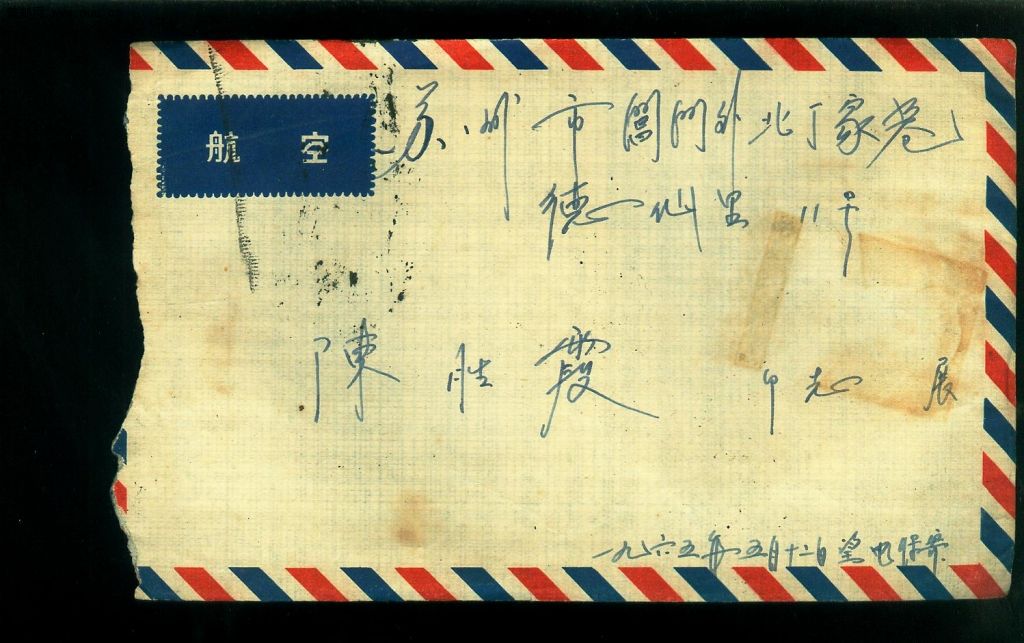 航空
苏州市閶門外北丁家巷
德仙里 11号
陳胜霞 同志 展
一九六五年五月十二日